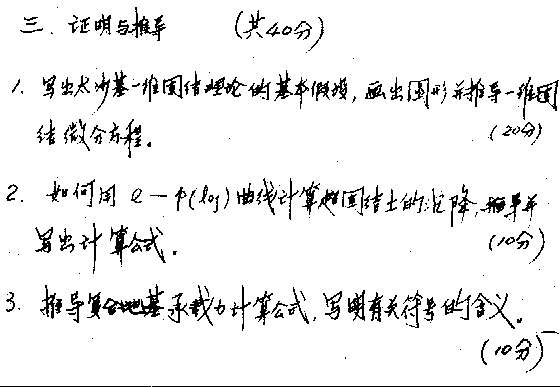 三. 证明与推导 (共40分)
1. 写出太沙基一维固结理论的基本假设,画出图形并推导一维固
结微分方程。 (20分)
2. 如何用 e-p(log)曲线计算超固结土的沉降,推导并
写出计算公式。 (10分)
3. 推导复合地基承载力计算公式,写明有关符号的含义。
(10分)